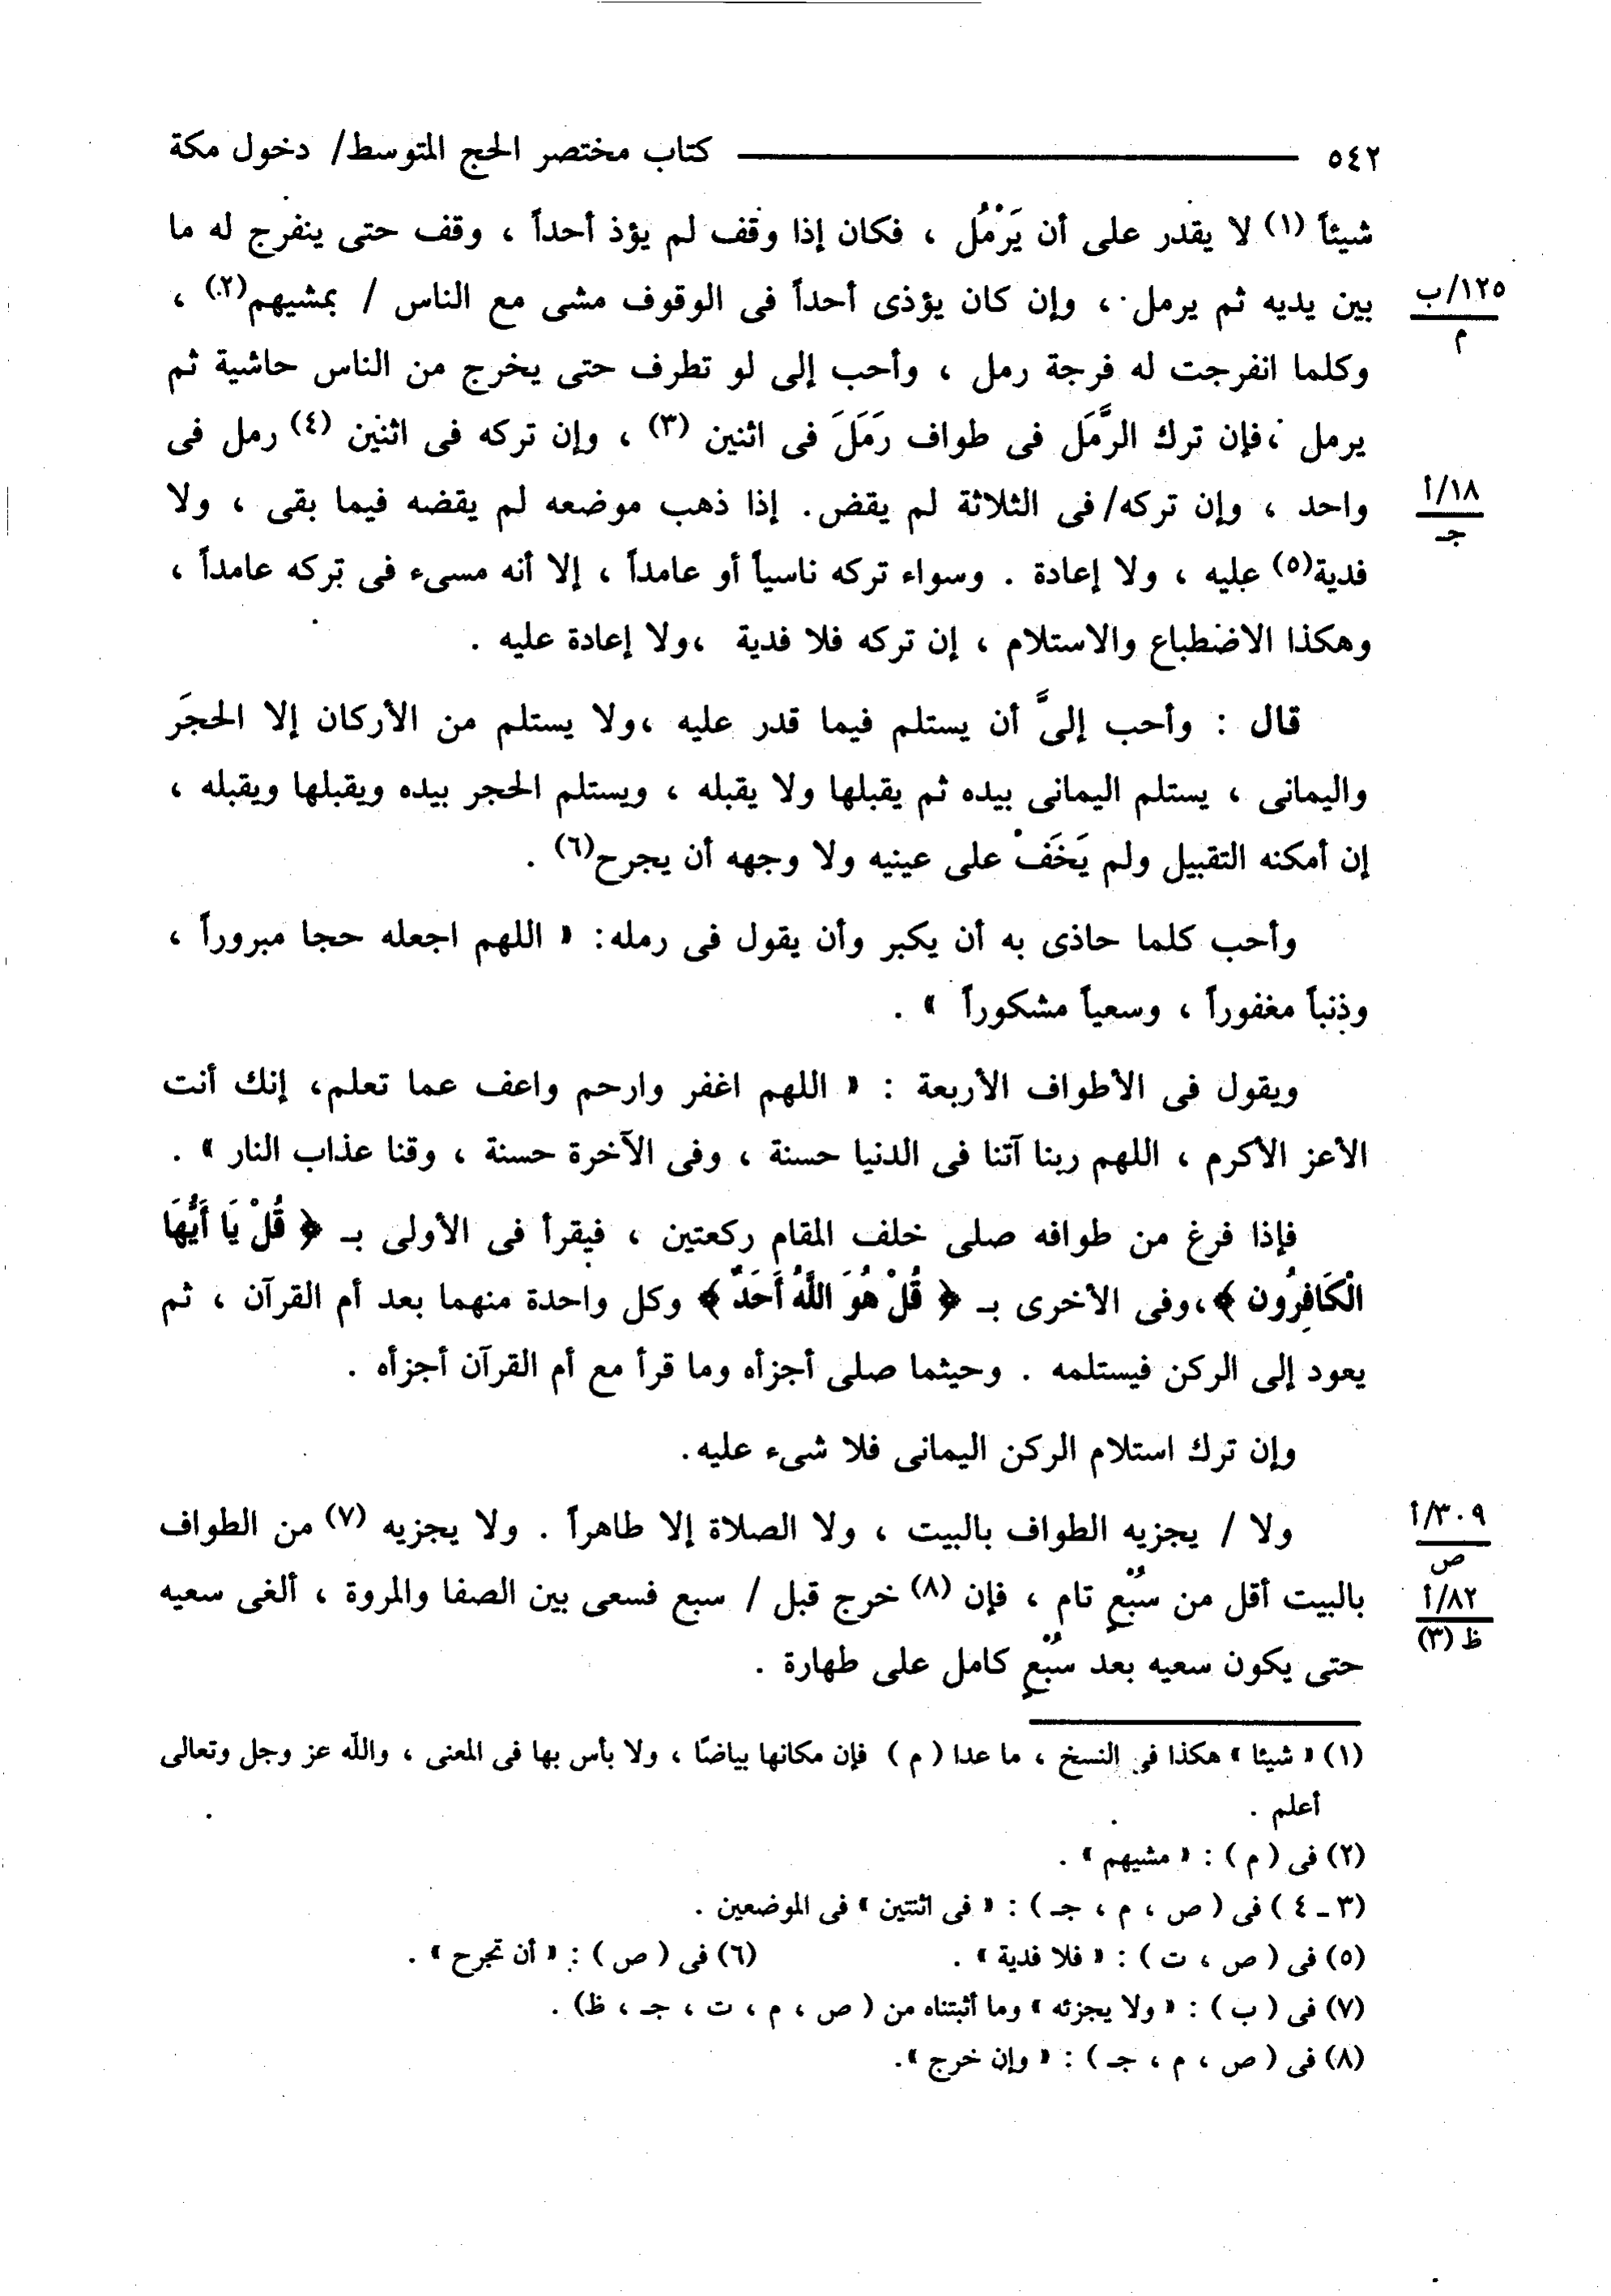 ٥٤٢ ــــــــــــــــــــ كتاب مختصر الحج المتوسط/ دخول مكة
شيئاً (١) لا يقدر على أن يَرْمُل ، فكان إذا وقف لم يؤذ أحداً ، وقف حتى ينفرج له ما
بين يديه ثم يرمل ، وإن كان يؤذى أحداً فى الوقوف مشى مع الناس / بمشيهم(٢) ،
١٢٥/ب
م
وكلما انفرجت له فرجة رمل ، وأحب إلى لو تطرف حتى يخرج من الناس حاشية ثم
يرمل ،فإن ترك الرَّمَل فى طواف رَمَلَ فى اثنين (٣) ، وإن تركه فى اثنين (٤) رمل فى
واحد ، وإن تركه/ فى الثلاثة لم يقض. إذا ذهب موضعه لم يقضه فيما بقى ، ولا
١٨/أ
جـ
فدية(٥) عليه ، ولا إعادة . وسواء تركه ناسياً أو عامداً ، إلا أنه مسىء فى تركه عامداً ،
وهكذا الاضطباع والاستلام ، إن تركه فلا فدية ،ولا إعادة عليه .
قال : وأحب إلىَّ أن يستلم فيما قدر عليه ،ولا يستلم من الأركان إلا الحجَر
واليمانى ، يستلم اليمانى بيده ثم يقبلها ولا يقبله ، ويستلم الحجر بيده ويقبلها ويقبله ،
إن أمكنه التقبيل ولم يَخَفْ على عينيه ولا وجهه أن يجرح(٦) .
وأحب كلما حاذى به أن يكبر وأن يقول فى رمله: « اللهم اجعله حجا مبروراً ،
وذنباً مغفوراً ، وسعياً مشكوراً » .
ويقول فى الأطواف الأربعة : « اللهم اغفر وارحم واعف عما تعلم، إنك أنت
الأعز الأكرم ، اللهم ربنا آتنا فى الدنيا حسنة ، وفى الآخرة حسنة ، وقنا عذاب النار » .
فإذا فرغ من طوافه صلى خلف المقام ركعتين ، فيقرأ فى الأولى بـ ﴿ قُلْ يَا أَيُّهَا
الْكَافِرُون ﴾،وفى الأخرى بـ ﴿ قُلْ هُوَ اللَّهُ أَحَدٌ ﴾ وكل واحدة منهما بعد أم القرآن ، ثم
يعود إلى الركن فيستلمه . وحيثما صلى أجزأه وما قرأ مع أم القرآن أجزأه .
وإن ترك استلام الركن اليمانى فلا شىء عليه.
ولا / يجزيه الطواف بالبيت ، ولا الصلاة إلا طاهراً . ولا يجزيه (٧) من الطواف
٣٠٩/أ
ص
بالبيت أقل من سُبْعٍ تام ، فإن (٨) خرج قبل / سبع فسعى بين الصفا والمروة ، ألغى سعيه
٨٢/أ
ظ (٣)
حتى يكون سعيه بعد سُبْعٍ كامل على طهارة .
(١) « شيئا » هكذا فى النسخ ، ما عدا ( م ) فإن مكانها بياضًا ، ولا بأس بها فى المعنى ، والله عز وجل وتعالى
أعلم .
(٢) فى ( م ) : « مشيهم » .
(٣ ـ ٤ ) فى ( ص ، م ، جـ ) : « فى اثنتين » فى الموضعين .
(٥) فى ( ص ، ت ) : « فلا فدية » . (٦) فى ( ص ) : « أن تجرح » .
(٧) فى ( ب ) : « ولا يجزئه » وما أثبتناه من ( ص ، م ، ت ، جـ ، ظ) .
(٨) فى ( ص ، م ، جـ ) : « وإن خرج ».